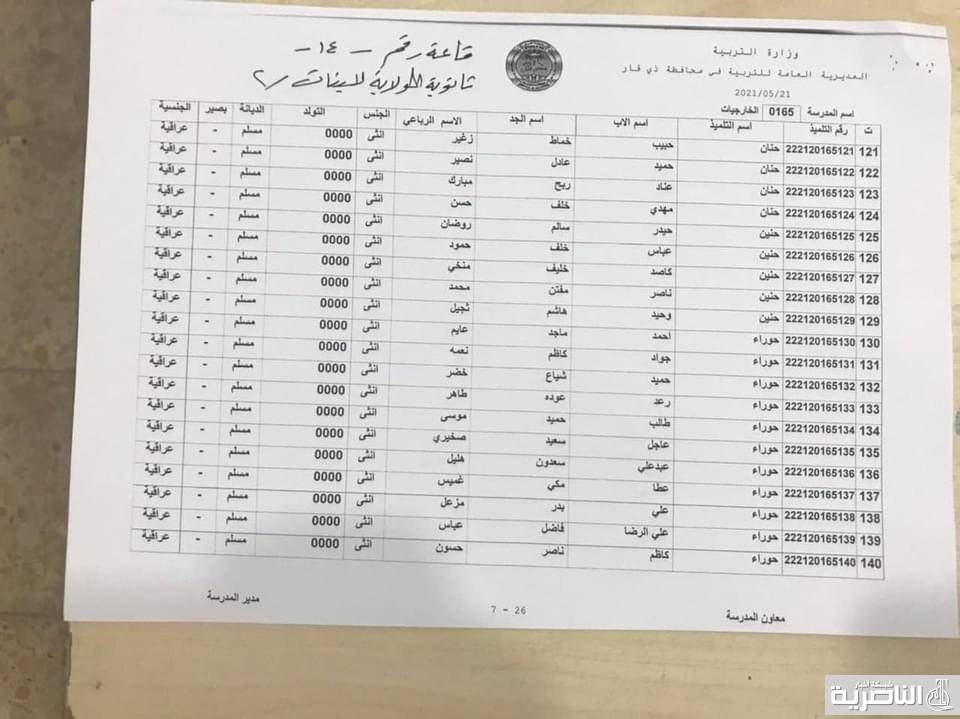 وزارة التربية
المديرية العامة للتربية في محافظة ذي قار
2021/05/21
قاعة رقم - ١٤ -
ثانوية الولاية للبنات
اسم المدرسة 0165 الخارجيات
ت رقم التلميذ اسم التلميذ اسم الاب اسم الجد الاسم الرباعي الجنس التولد الديانة بصير الجنسية
121 222120165121 حنان حبيب خماط زغير انثى 0000 مسلم - عراقية
122 222120165122 حنان حميد عادل نصير انثى 0000 مسلم - عراقية
123 222120165123 حنان عناد ربح مبارك انثى 0000 مسلم - عراقية
124 222120165124 حنان مهدي خلف حسن انثى 0000 مسلم - عراقية
125 222120165125 حنين حيدر سالم روضان انثى 0000 مسلم - عراقية
126 222120165126 حنين عباس خلف حمود انثى 0000 مسلم - عراقية
127 222120165127 حنين كاصد خليف منخي انثى 0000 مسلم - عراقية
128 222120165128 حنين ناصر مفتن محمد انثى 0000 مسلم - عراقية
129 222120165129 حنين وحيد هاشم ثجيل انثى 0000 مسلم - عراقية
130 222120165130 حوراء احمد ماجد عايم انثى 0000 مسلم - عراقية
131 222120165131 حوراء جواد كاظم نعمه انثى 0000 مسلم - عراقية
132 222120165132 حوراء حميد شياع خضر انثى 0000 مسلم - عراقية
133 222120165133 حوراء رعد عوده طاهر انثى 0000 مسلم - عراقية
134 222120165134 حوراء طالب حميد موسى انثى 0000 مسلم - عراقية
135 222120165135 حوراء عاجل سعيد صخيري انثى 0000 مسلم - عراقية
136 222120165136 حوراء عبدعلي سعدون هليل انثى 0000 مسلم - عراقية
137 222120165137 حوراء عطا مكي غميس انثى 0000 مسلم - عراقية
138 222120165138 حوراء علي بدر مزعل انثى 0000 مسلم - عراقية
139 222120165139 حوراء علي الرضا فاضل عباس انثى 0000 مسلم - عراقية
140 222120165140 حوراء كاظم ناصر حسون انثى 0000 مسلم - عراقية
معاون المدرسة
7 - 26
مدير المدرسة
شبكة أخبار
الناصرية